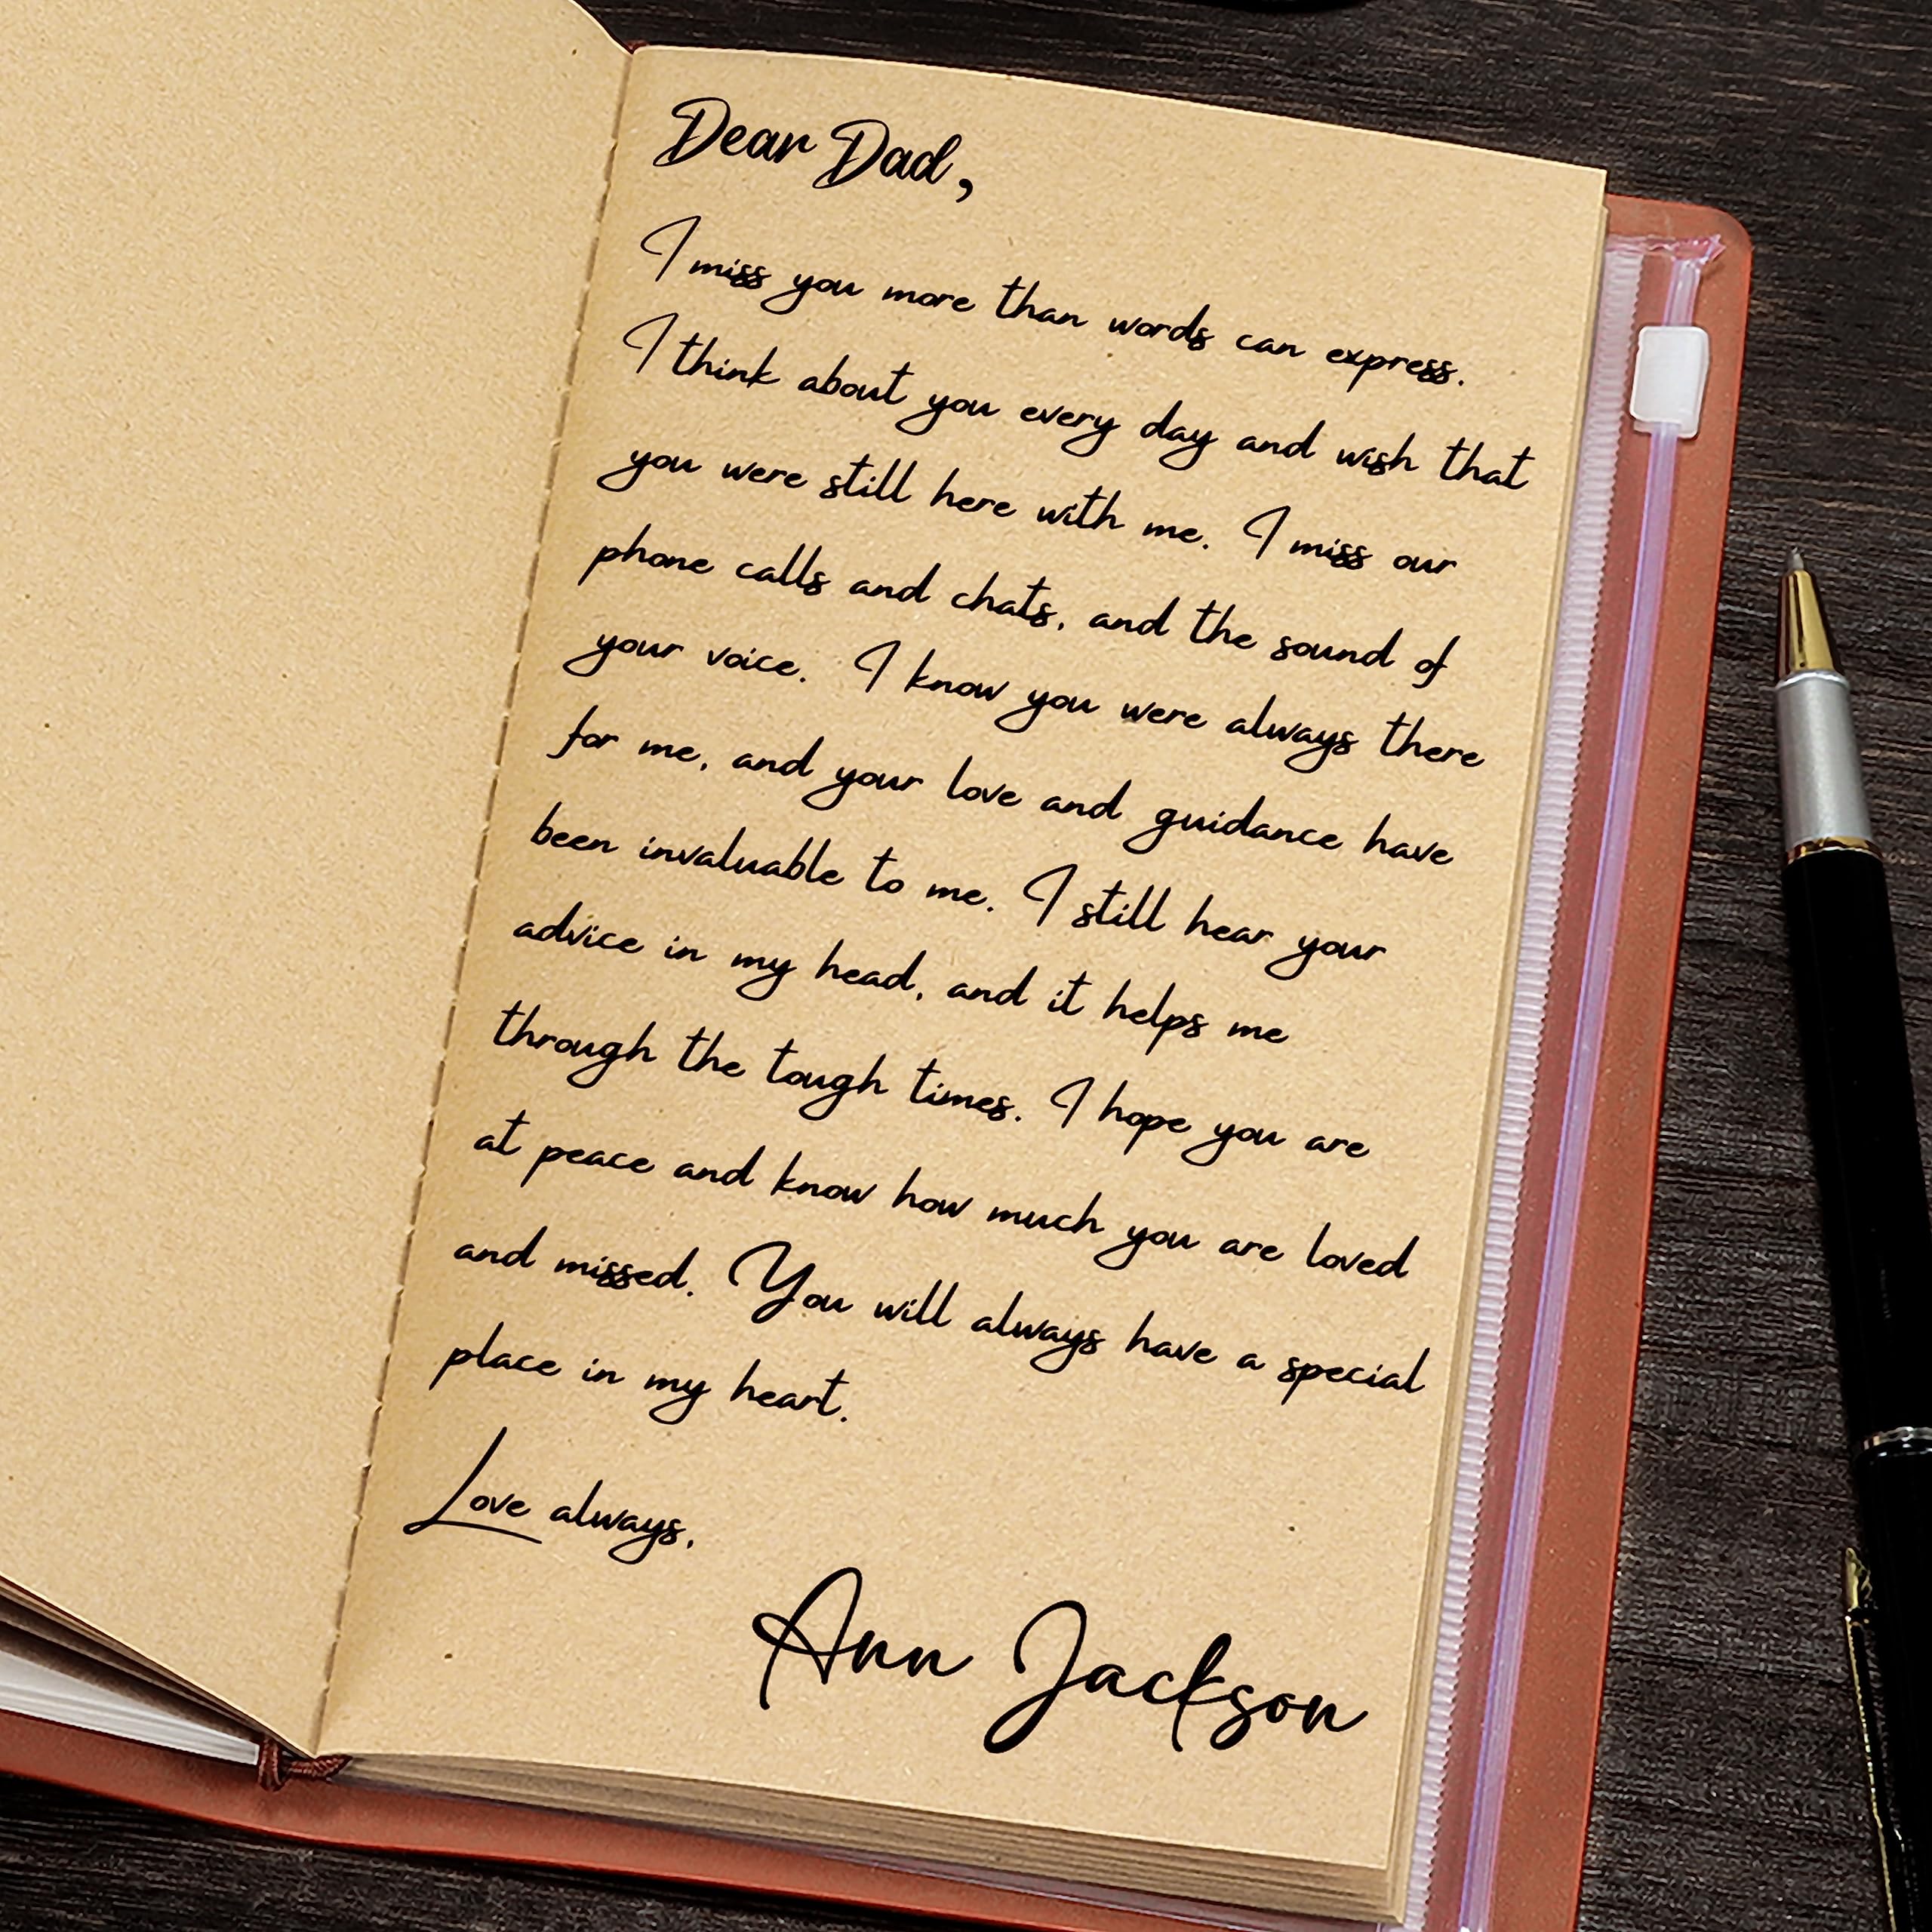 Dear Dad,
I miss you more than words can express.
I think about you every day and wish that
you were still here with me. I miss our
phone calls and chats, and the sound of
your voice. I know you were always there
for me, and your love and guidance have
been invaluable to me. I still hear your
advice in my head, and it helps me
through the tough times. I hope you are
at peace and know how much you are loved
and missed. You will always have a special
place in my heart.
Love always,
Ann Jackson